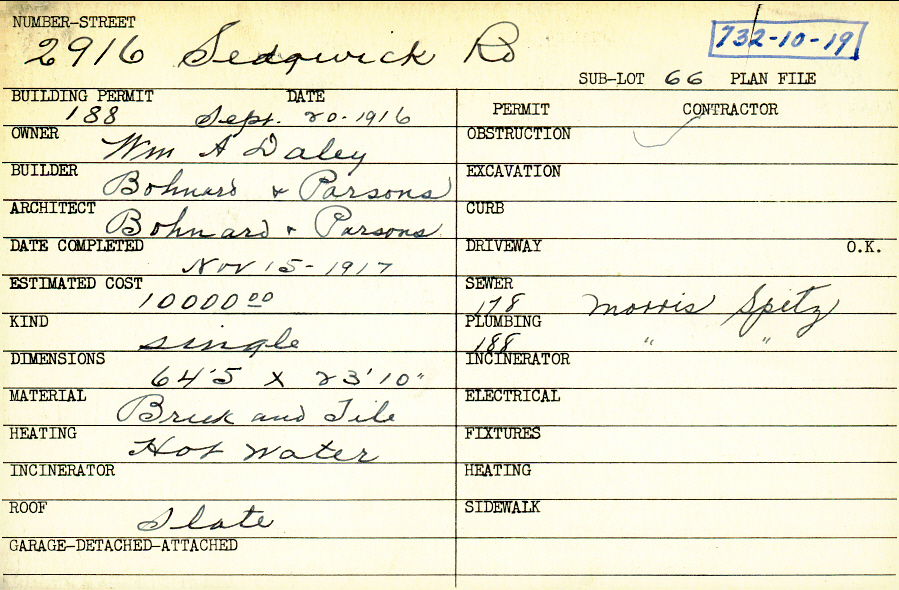 NUMBER-STREET
2916 Sedgwick Rd
732-10-19
SUB-LOT 66 PLAN FILE
BUILDING PERMIT DATE
188 Sept. 20-1916
OWNER
Wm A Daley
BUILDER
Bohnard & Parsons
ARCHITECT
Bohnard & Parsons
DATE COMPLETED
Nov 15-1917
ESTIMATED COST
10000 00
KIND
single
DIMENSIONS
64'5 x 23'10"
MATERIAL
Brick and Tile
HEATING
Hot Water
INCINERATOR
ROOF
Slate
GARAGE-DETACHED-ATTACHED
PERMIT CONTRACTOR
OBSTRUCTION
EXCAVATION
CURB
DRIVEWAY O.K.
SEWER
178 Morris Spitz
PLUMBING
188 " "
INCINERATOR
ELECTRICAL
FIXTURES
HEATING
SIDEWALK